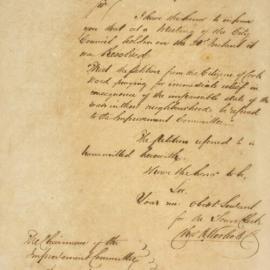 Sir
I have the honor to inform
you that at a Meeting of the City
Council holden on the Instant it
was Resolved
That the petition from the Citizens of Cook
Ward praying for immediate relief in
consequence of the impassable state of the
roads in their neighbourhood, be referred
to the Improvement Committee
The Petition referred to is
transmitted herewith
I have the honor to be,
Sir
Your mo. obedt Servant
for the Town Clerk
Wm
The Chairman of the
Improvement Committee